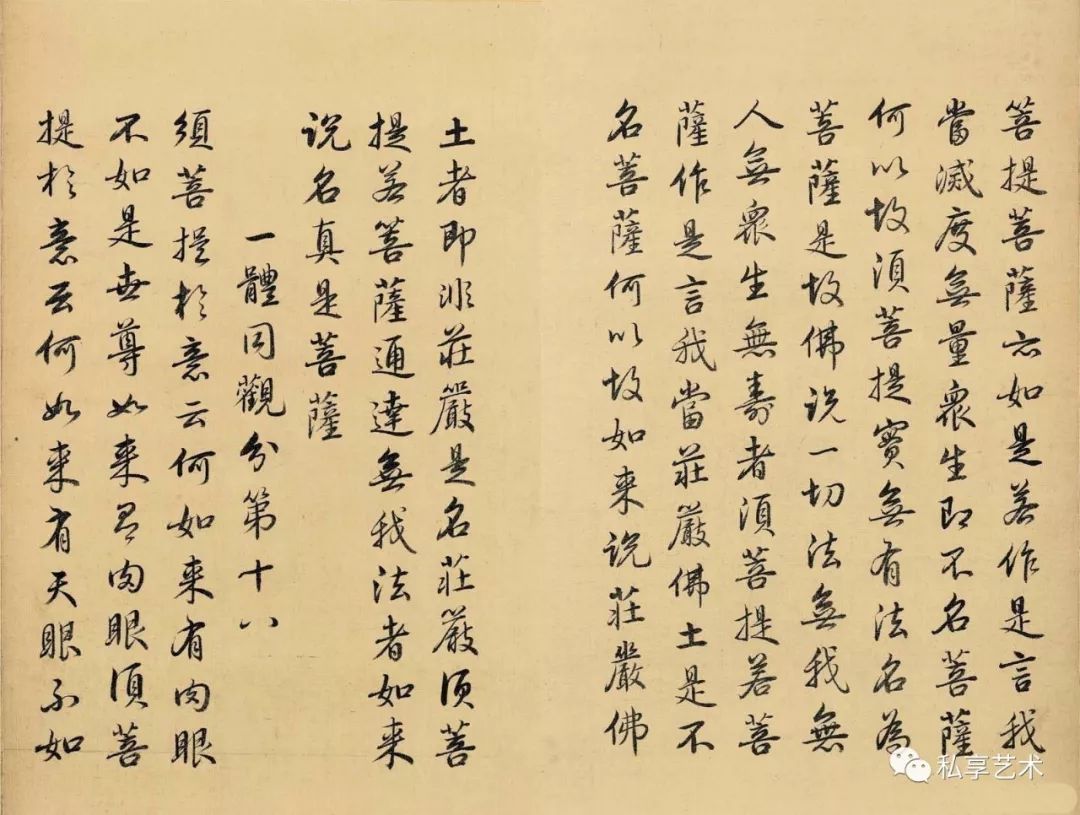 菩提菩薩亦如是若作是言我
當滅度無量衆生即不名菩薩
何以故須菩提實無有法名為
菩薩是故佛說一切法無我無
人無衆生無壽者須菩提若菩
薩作是言我當莊嚴佛土是不
名菩薩何以故如来說莊嚴佛
土者即非莊嚴是名莊嚴須菩
提若菩薩通達無我法者如来
說名真是菩薩
一體同觀分第十八
須菩提於意云何如来有肉眼
不如是世尊如来有肉眼須菩
提於意云何如来有天眼不如
私享艺术